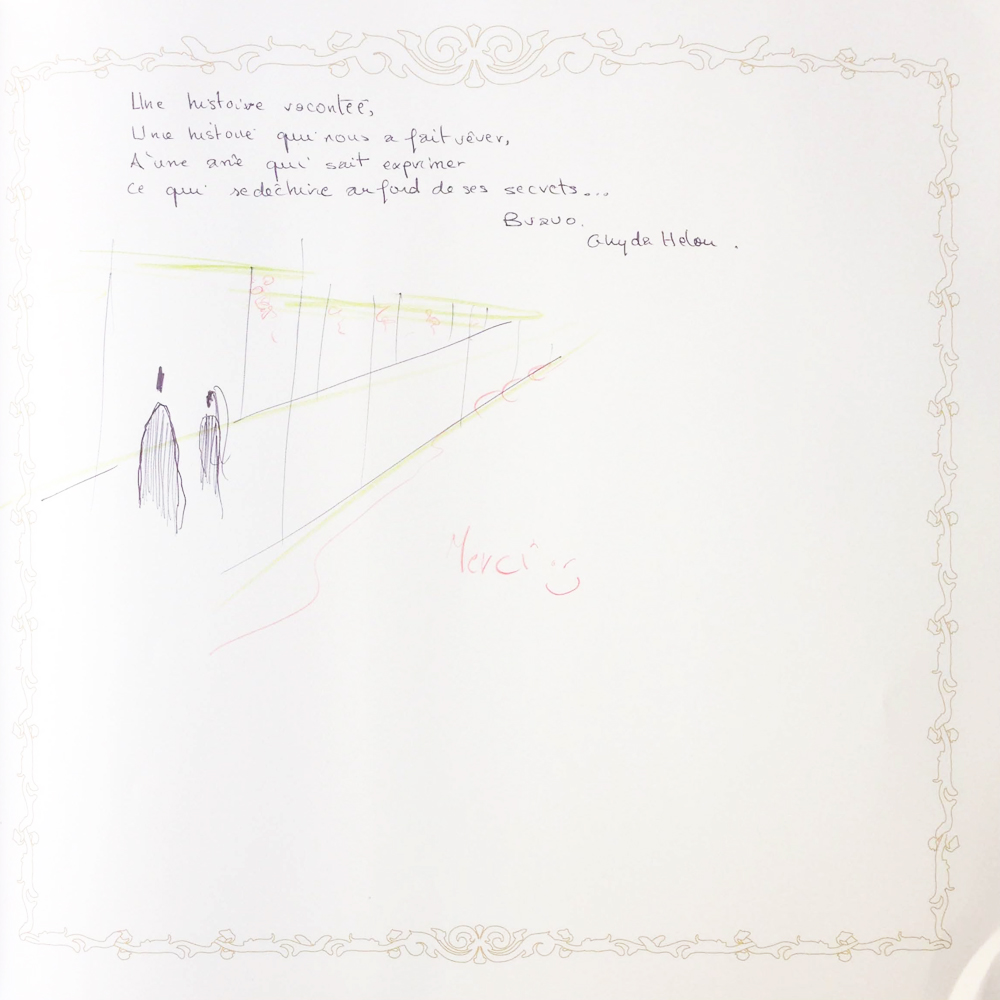 Une histoire racontée,
Une histoire qui nous a fait rêver,
d'une âme qui sait exprimer
ce qui se déchire au fond de ses secrets...
Bravo.
Helou.
Merci :)